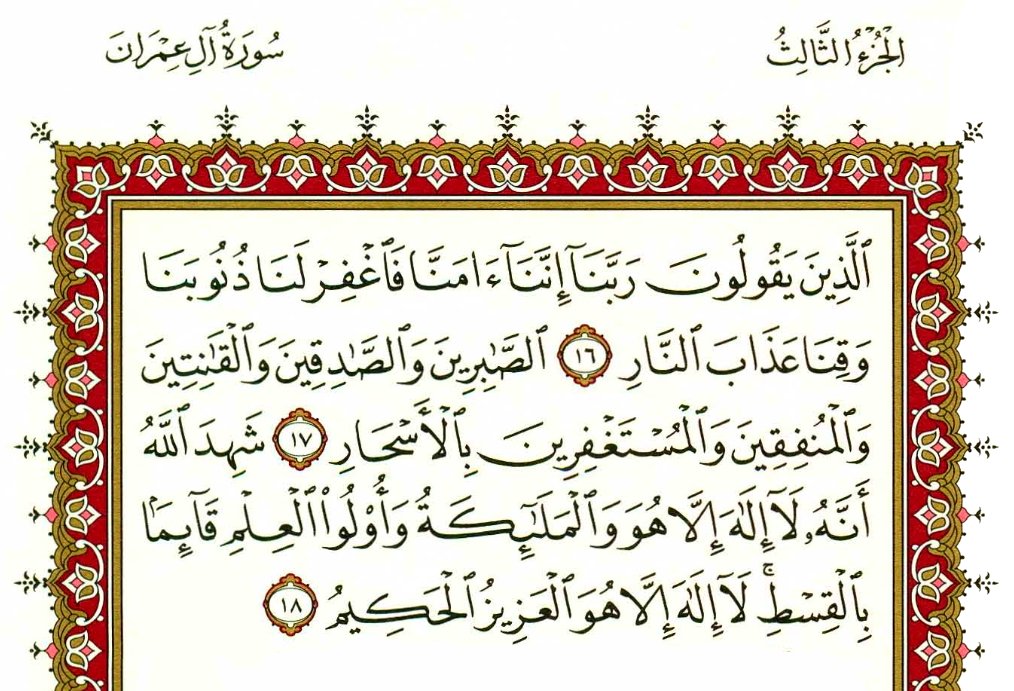 الْجُزْءُ الثَّالِثُ
سُورَةُ آلِ عِمْرَانَ
ٱلَّذِينَ يَقُولُونَ رَبَّنَآ إِنَّنَآ ءَامَنَّا فَٱغْفِرْ لَنَا ذُنُوبَنَا
وَقِنَا عَذَابَ ٱلنَّارِ ١٦ ٱلصَّٰبِرِينَ وَٱلصَّٰدِقِينَ وَٱلْقَٰنِتِينَ
وَٱلْمُنفِقِينَ وَٱلْمُسْتَغْفِرِينَ بِٱلْأَسْحَارِ ١٧ شَهِدَ ٱللَّهُ
أَنَّهُۥ لَآ إِلَٰهَ إِلَّا هُوَ وَٱلْمَلَٰٓئِكَةُ وَأُو۟لُوا۟ ٱلْعِلْمِ قَآئِمًۢا
بِٱلْقِسْطِ ۚ لَآ إِلَٰهَ إِلَّا هُوَ ٱلْعَزِيزُ ٱلْحَكِيمُ ١٨